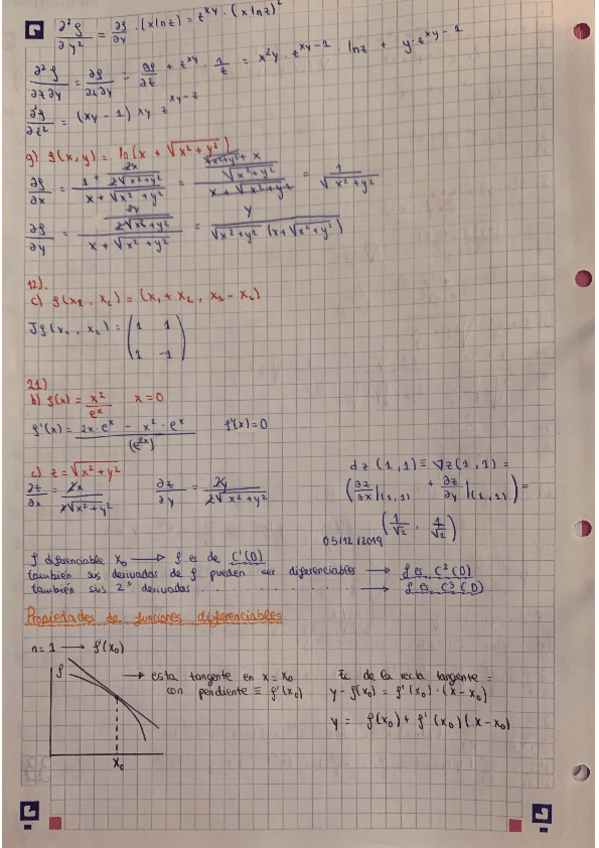 ∂²f/∂y² = ∂f/∂y · (x ln z) = z^xy · (x ln z)²
∂²f/∂z∂y = ∂f/∂z∂y = ∂f/∂z + z^xy · 1/z = x²y · z^xy-1 · ln z + y · z^xy-1
∂²f/∂z² = (xy - 1) xy z^xy-2
g) f(x, y) = ln(x + √x² + y²)
∂f/∂x = (1 + 2x/2√x²+y²)/(x + √x² + y²) = ((√x²+y² + x)/√x²+y²)/(x + √x²+y²) = 1/√x² + y²
∂f/∂y = (2y/2√x²+y²)/(x + √x² + y²) = y/(√x²+y² (x + √x²+y²))
12).
c) f(x₁, x₂) = (x₁ + x₂, x₁ - x₂)
Jf(x₁, x₂) = (1 1
1 -1)
21)
b) f(x) = x²/eˣ x = 0
f'(x) = (2x · eˣ - x² · eˣ)/(e²ˣ) f'(x) = 0
c) z = √x² + y² dz (1, 1) ≡ ∇z (1, 1) =
∂z/∂x = 2x/2√x² + y² ∂z/∂y = 2y/2√x² + y² (∂z/∂x|(1,1) + ∂z/∂y|(1,1)) =
(1/√2, 1/√2)
05/12/2019
f diferenciable x₀ → f es de C¹(D)
también sus derivadas de f pueden ser diferenciables → f es C²(D)
también sus 2ˢ derivadas . . . . . . . . . . → f es C³(D)
Propiedades de funciones diferenciables
n = 1 → f'(x₀)
f → esta tangente en x = x₀ Ec de la recta tangente =
con pendiente ≡ f'(x₀) y - f(x₀) = f'(x₀) · (x - x₀)
y = f(x₀) + f'(x₀)(x - x₀)
x₀